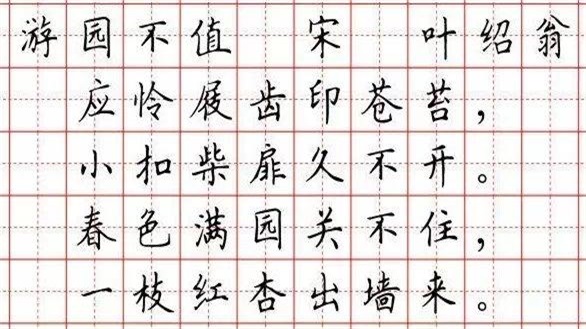 游园不值 宋 叶绍翁
应怜展齿印苍苔，
小扣柴扉久不开。
春色满园关不住，
一枝红杏出墙来。